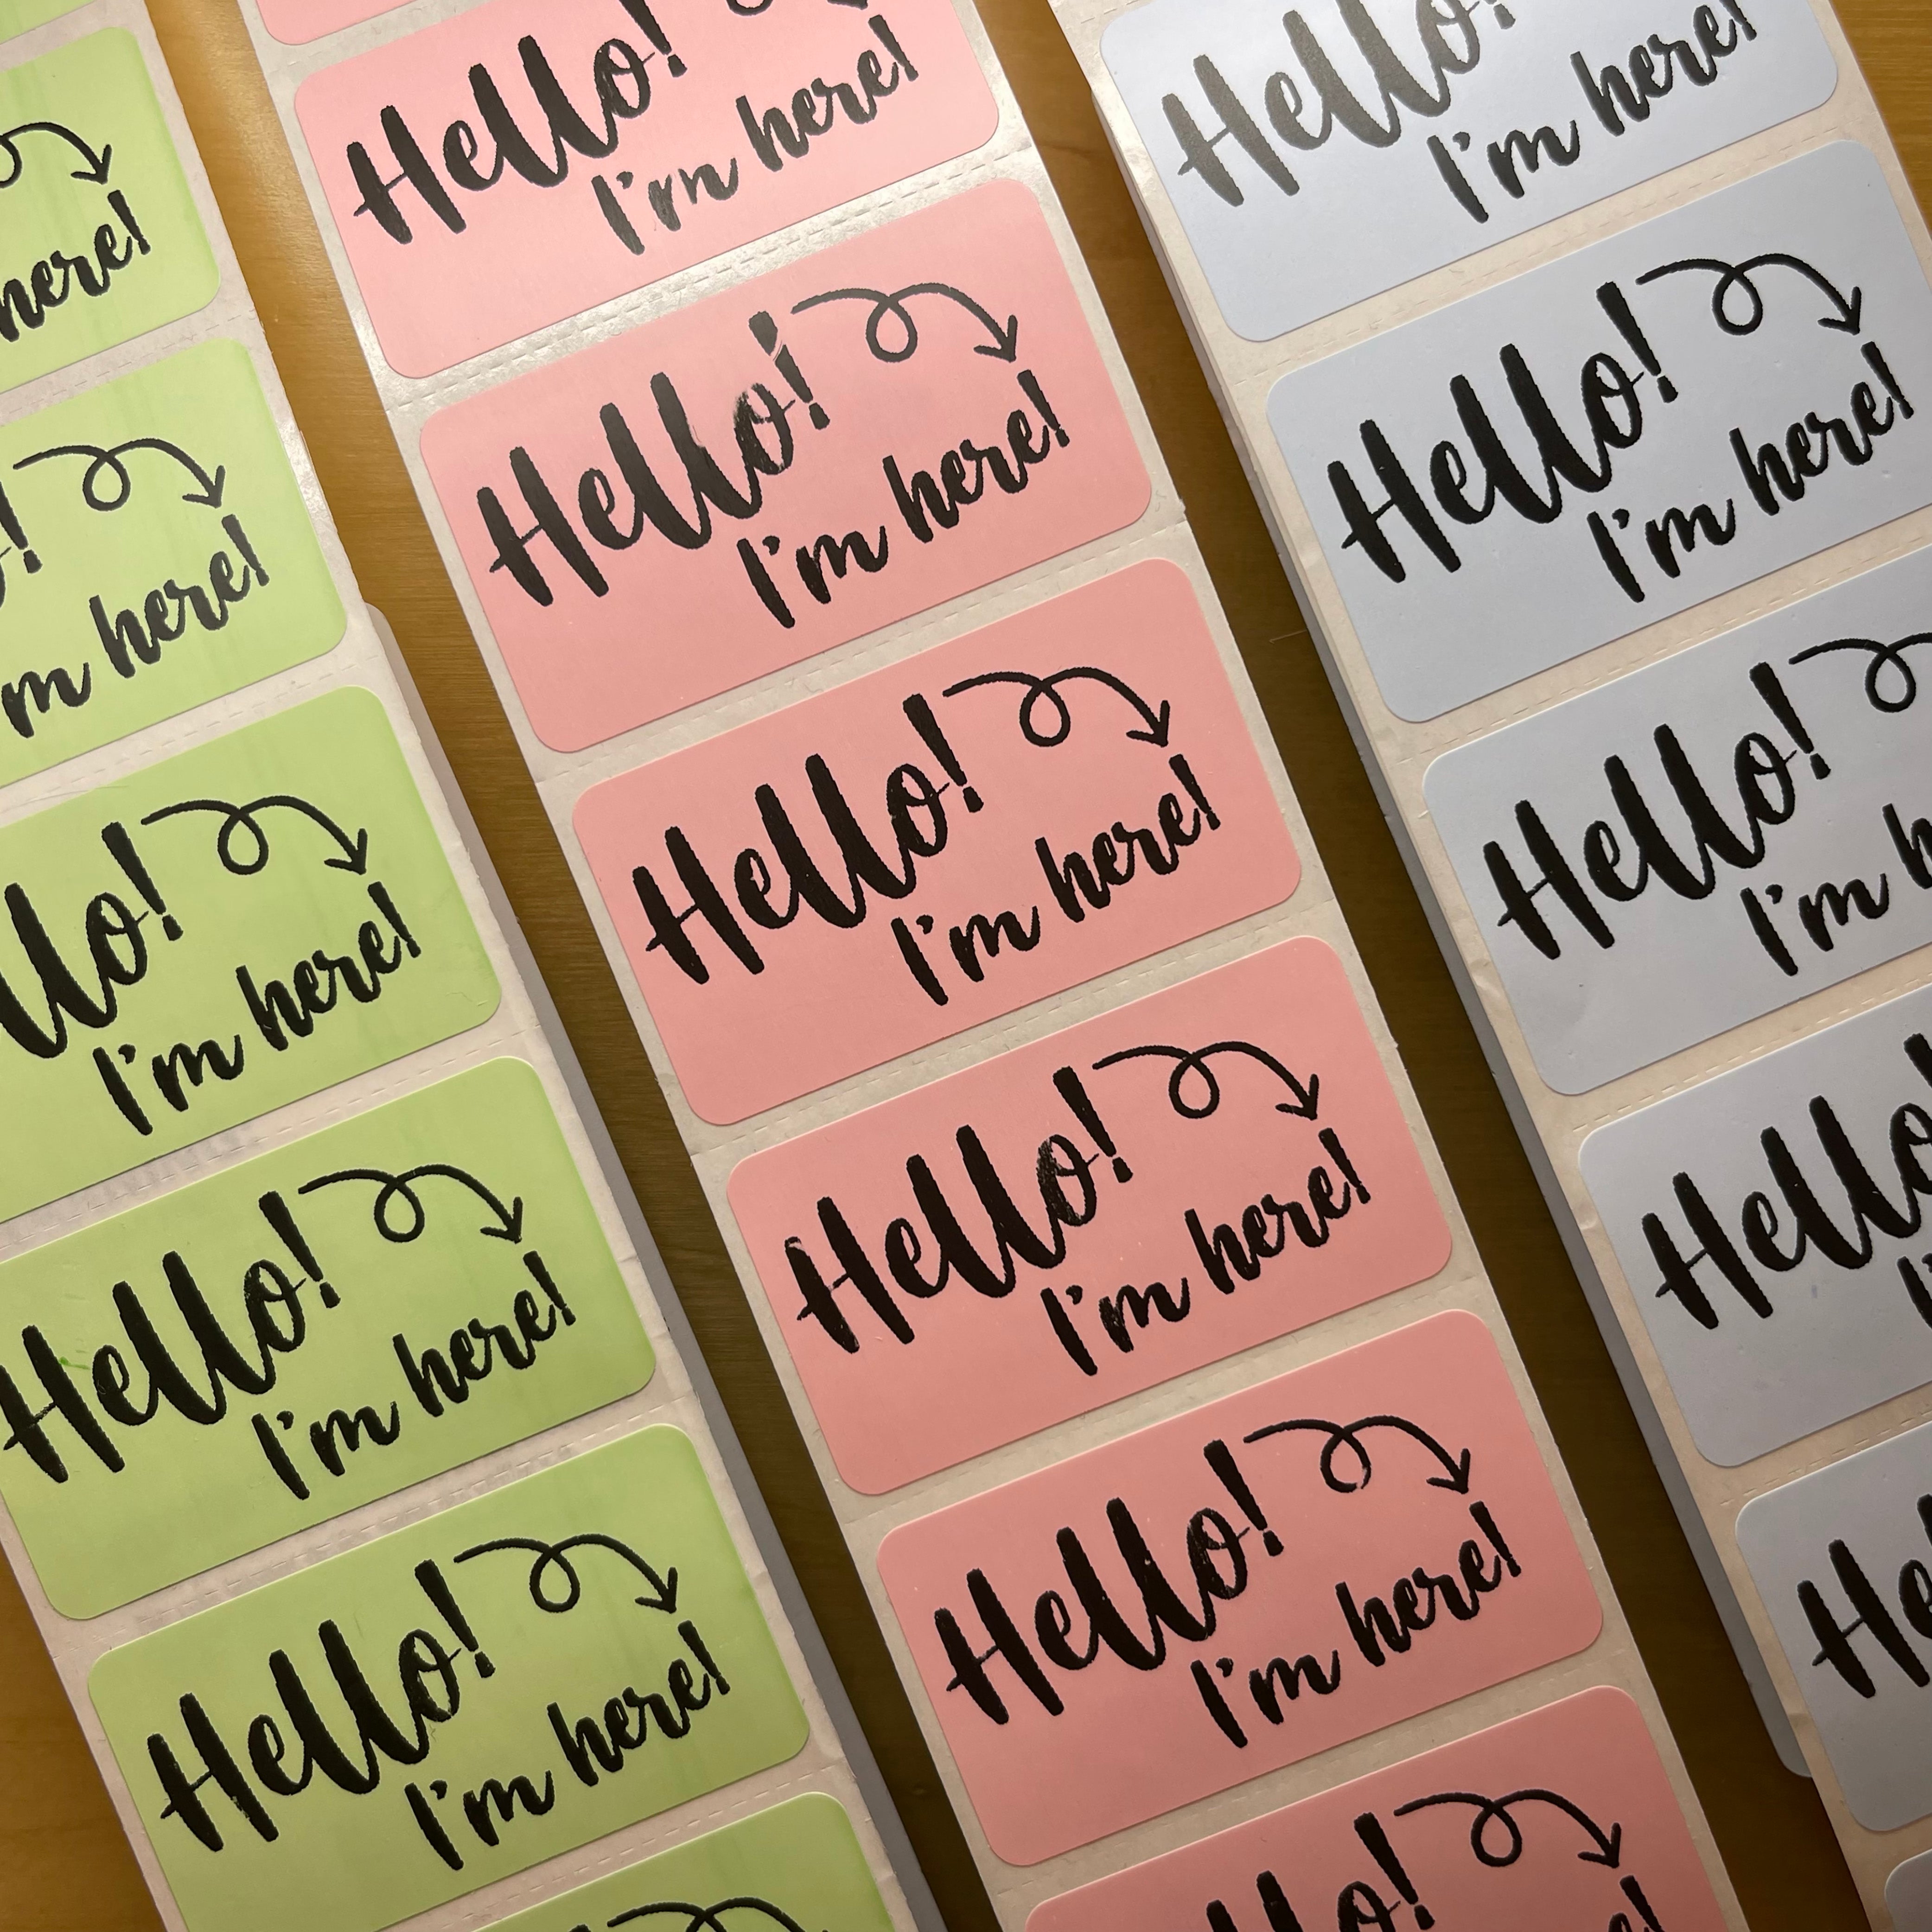 here!
!
m here!
llo!
I'm here!
Hello!
I'm here!
Hello!
I'm here!
Hello!
I'm here!
Hello!
I'm here!
Hello!
I'm here!
Hello!
I'm here!
Hello!
I'm here!
Hello!
Hello!
I'm here!
Hello!
I'm here!
Hello!
I'm h
Hello
He